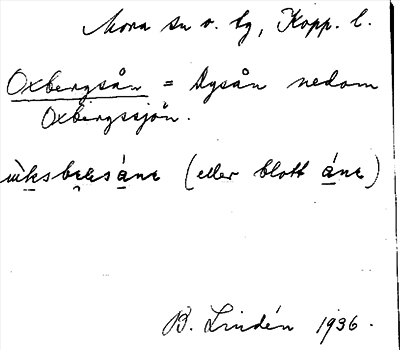 Mora sn o. by, Kopp. l.
Oxbergsån = Dysån nedom
Oxbergssjön.
(eller blott ánɛ)
B. Lindén 1936.